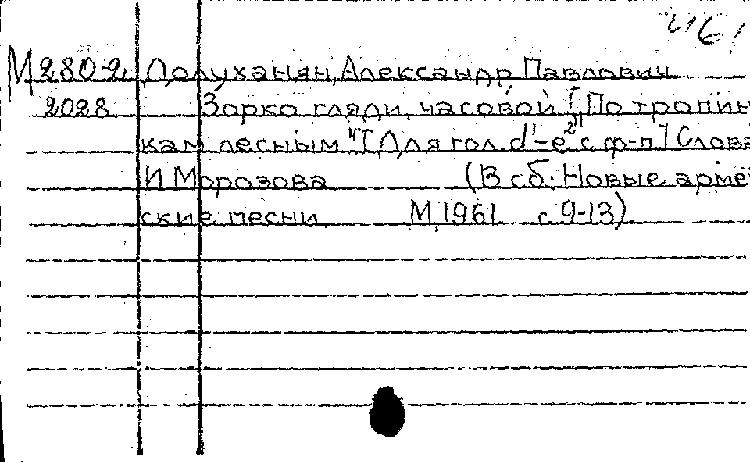 И61
М280-2 Долуханян, Александр Павлович
2028 Зорко гляди, часовой ["По тропин
кам лесным"] [Для гол. d¹-e² с ф-п] Слова
И Морозова (В сб: Новые армей
ские песни М, 1961 с 9-13)